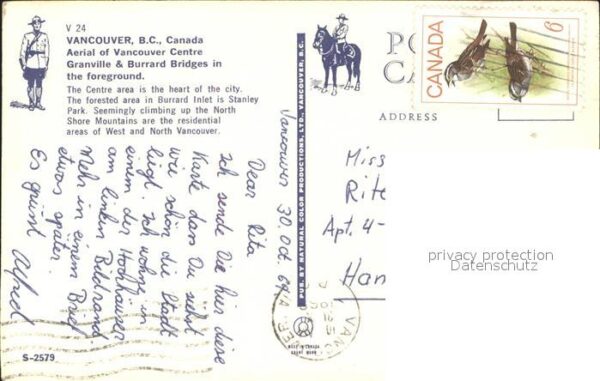 V 24
VANCOUVER, B.C., Canada
Aerial of Vancouver Centre
Granville & Burrard Bridges in
the foreground.
The Centre area is the heart of the city.
The forested area in Burrard Inlet is Stanley
Park. Seemingly climbing up the North
Shore Mountains are the residential
areas of West and North Vancouver.
Vancouver 30. Oct. 69
Dear Rita
Ich sende Dir hier diese
Karte dass Du siehst
wie schön die Stadt
liegt. Ich wohne in
einem der Hochhäuser
am linken Bildrand.
Mehr in einem Brief
etwas später.
Es grüsst
Alfred
S-2579
PUB. BY NATURAL COLOR PRODUCTIONS, LTD., VANCOUVER, B.C.
PO
CA
CANADA
6
ADDRESS
Miss
Rite
Apt. 4-
Han
privacy protection
Datenschutz
VANCOUVER